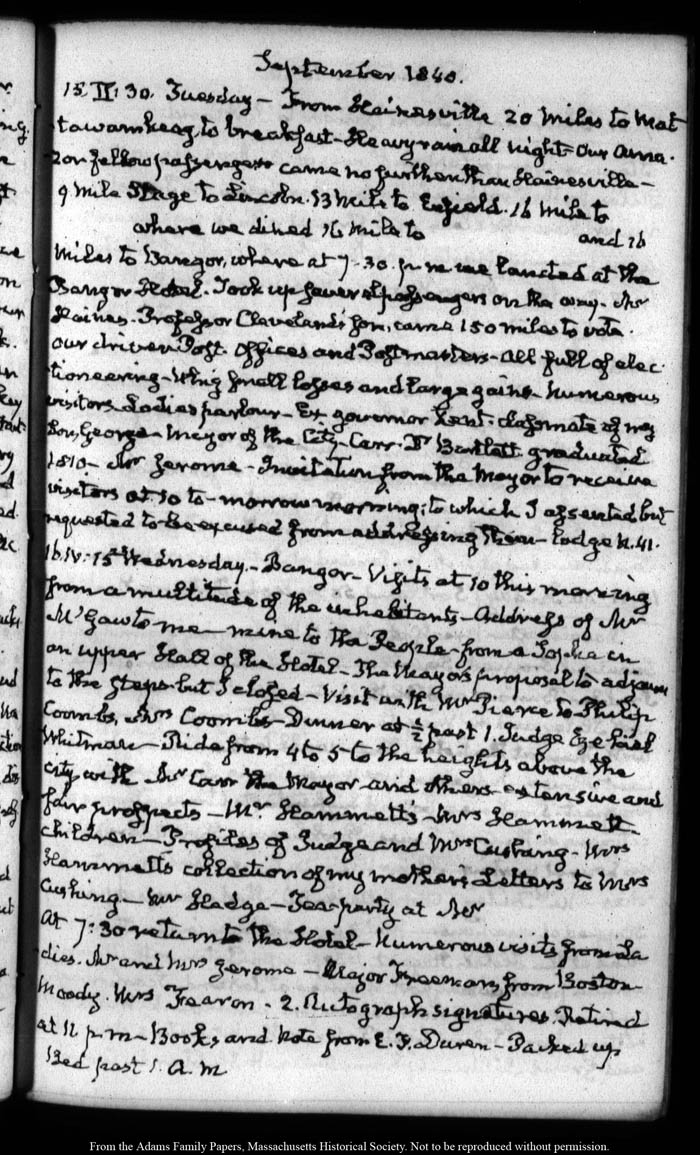 September 1840.
15. II: 30. Tuesday – From Hainesville 20 miles to Mat
tawamkeag, to breakfast – Heavy rain all night – Our
fellow passengers came no further than Hainesville –
9 mile Stage to Lincoln. 13 Miles to Enfield. 16 mile to
where we dined 16 mile to and 16
miles to Bangor, where at 7–30. p.m we landed at the
Bangor Hotel. Took up several passengers on the way. Mr
Haines. Professor Cleaveland's Son, came 150 miles to vote.
our driver. Post Offices and Postmasters – all full of elec
tioneering – Whig small losses and large gains – Numerous
visitors. Ladies parlour – Ex governor Kent. Classmate of my
Son, George – Mayor of the City – Carr. Dr Bartlett graduated
1810 – Mr Jerome – Invitation from the Mayor to receive
visitors at 10 to-morrow morning; to which I assented but
requested to be excused from addressing them – Lodge N. 41.
16. IV: 15 Wednesday. – Bangor – Visits at 10 this morning
from a multitude of the inhabitants – Address of Mr
McGaw to me – mine to the People – from a in
an upper Hall of the Hotel – The Mayor's proposal to adjourn
to the Steps but I closed – Visit with Mr Pierce to Philip
Coombs, Mrs Coombs – Dinner at ½ past 1. Judge Ezekiel
Whitman – Ride from 4 to 5 to the heights above the
city with Mr Carr the Mayor and others – extensive and
fair prospects – Mr Hammett's – Mrs Hammett –
children – Profiles of Judge and Mrs Cushing – Mrs
Hammett's collection of my mother's Letters to Mrs
Cushing – Mr Hedge – Tea-party at Mr
At 7:30 return to the Hotel – Numerous visits from La
dies. Mr and Mrs Jerome – Major Freeman, from Boston –
Moody. Mrs Fearon – 2. Autograph signatures. Retired
at 11 p m – Books, and Note from E. F. Duren – Packed up
Bed past 1. A. M
From the Adams Family Papers, Massachusetts Historical Society. Not to be reproduced without permission.